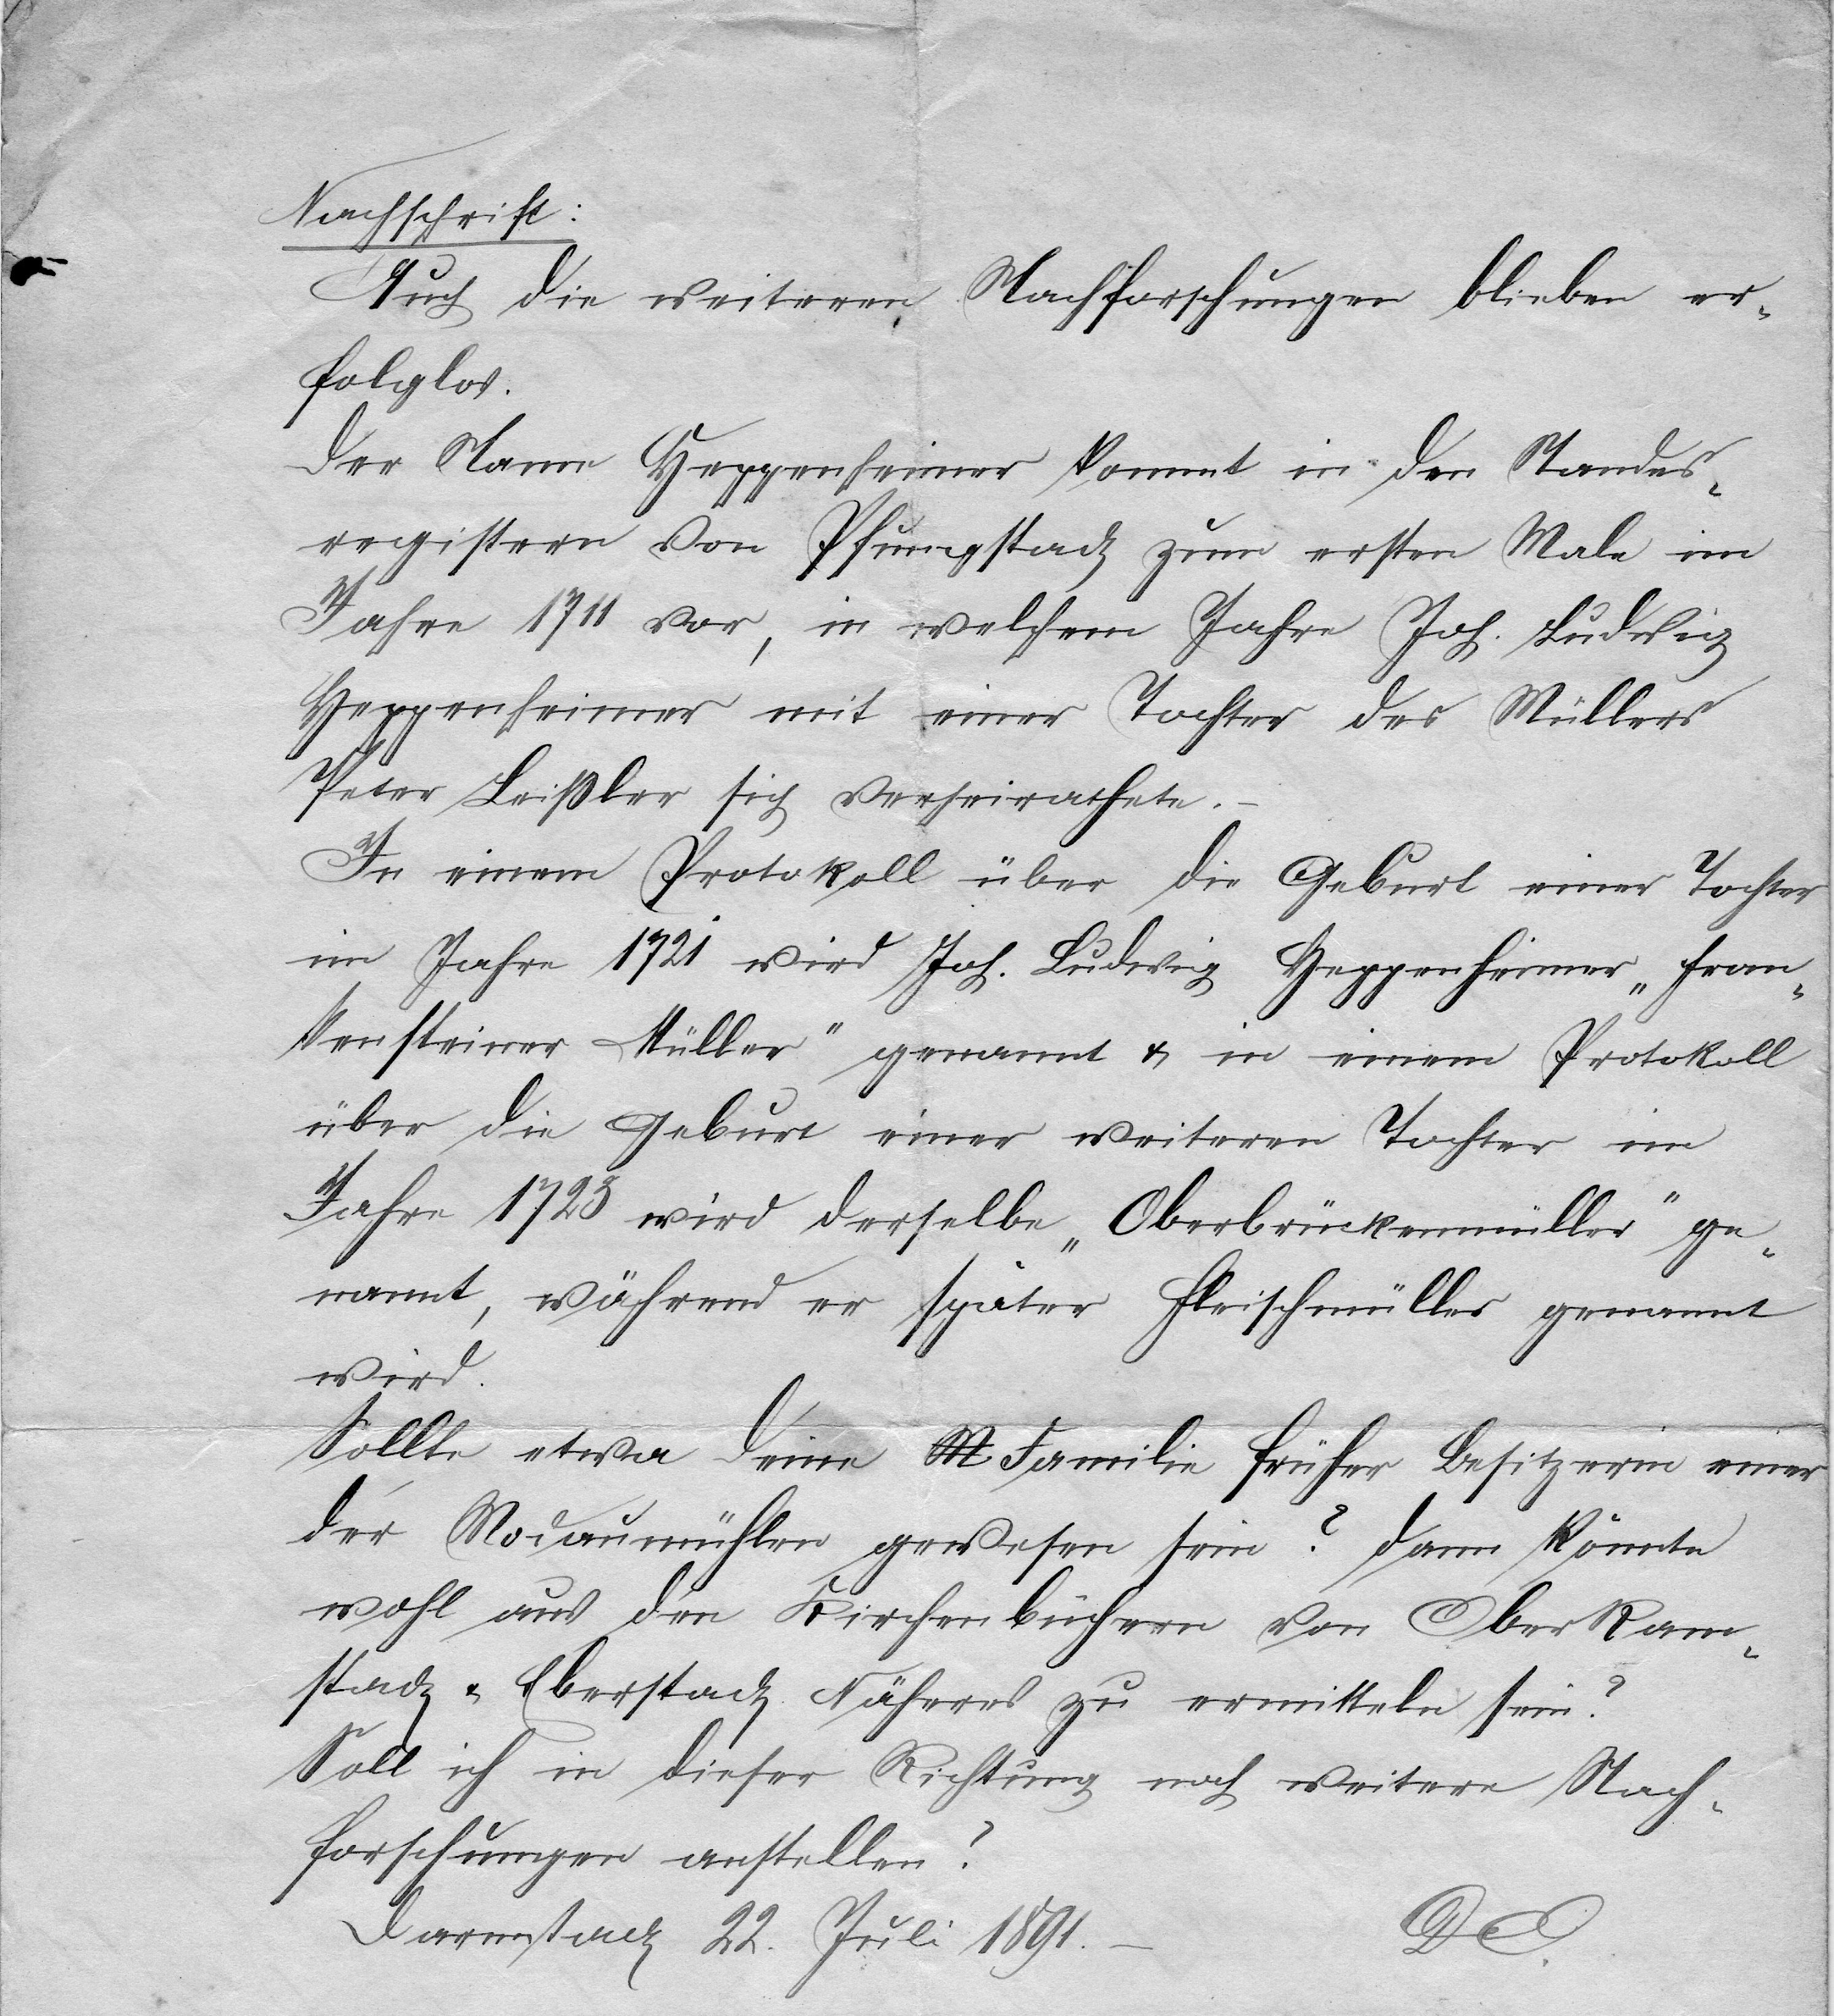 Nachschrift:
Auch die weiteren Nachforschungen blieben er-
folglos.
Der Name Heppenheimer kommt in den Standes-
registern von Pfungstadt zum ersten Male im
Jahre 1711 vor, in welchem Jahre Joh. Ludwig
Heppenheimer mit einer Tochter des Müllers
Peter Leißler sich verheirathete. –
In einem Protokoll über die Geburt einer Tochter
im Jahre 1721 wird Joh. Ludwig Heppenheimer „Fran-
kensteiner Müller“ genannt & in einem Protokoll
über die Geburt einer weiteren Tochter im
Jahre 1723 wird derselbe „Oberbrückenmüller“ ge-
nannt, während er später Fleischmüller genannt
wird.
Sollte etwa Deine Familie früher Besitzerin einer
der Modaumühlen gewesen sein? Dann könnte
wohl aus den Kirchenbüchern von Ober Ram-
stadt & Eberstadt Näheres zu ermitteln sein?
Soll ich in dieser Richtung noch weitere Nach-
forschungen anstellen?
Darmstadt 22. Juli 1891. –